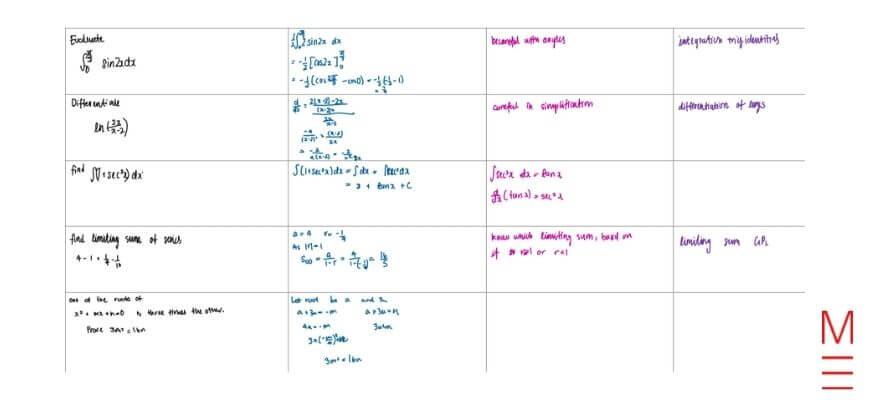 Evaluate
∫₀^(π/3) sin2x dx
∫₀^(π/3) sin2x dx
= -½[cos2x]₀^(π/3)
= -½(cos 2π/3 - cos0) = -½(-½-1)
be careful with angles
integration trig identities
Differentiate
ln(2x/x-2)
careful in simplification
differentiation of logs
find ∫(1+sec²x)dx
∫(1+sec²x)dx = ∫dx + ∫sec²dx
= x + tanx + C
∫sec²x dx = tanx
d/dx (tanx) = sec²x
find limiting sum of series
4 - 1 + ¼ - 1/16
a=4 r= -¼
As |r|<1
S∞ = a/1-r = 4/1-(-¼) = 16/5
know which limiting sum, based on
if r>1 or r<1
limiting sum GPs
one of the roots of
x² + mx + n = 0 is three times the other.
Prove 3m² = 16n
Let root be a and 3a
a + 3a = -m
4a = -m
3m² = 16n
M